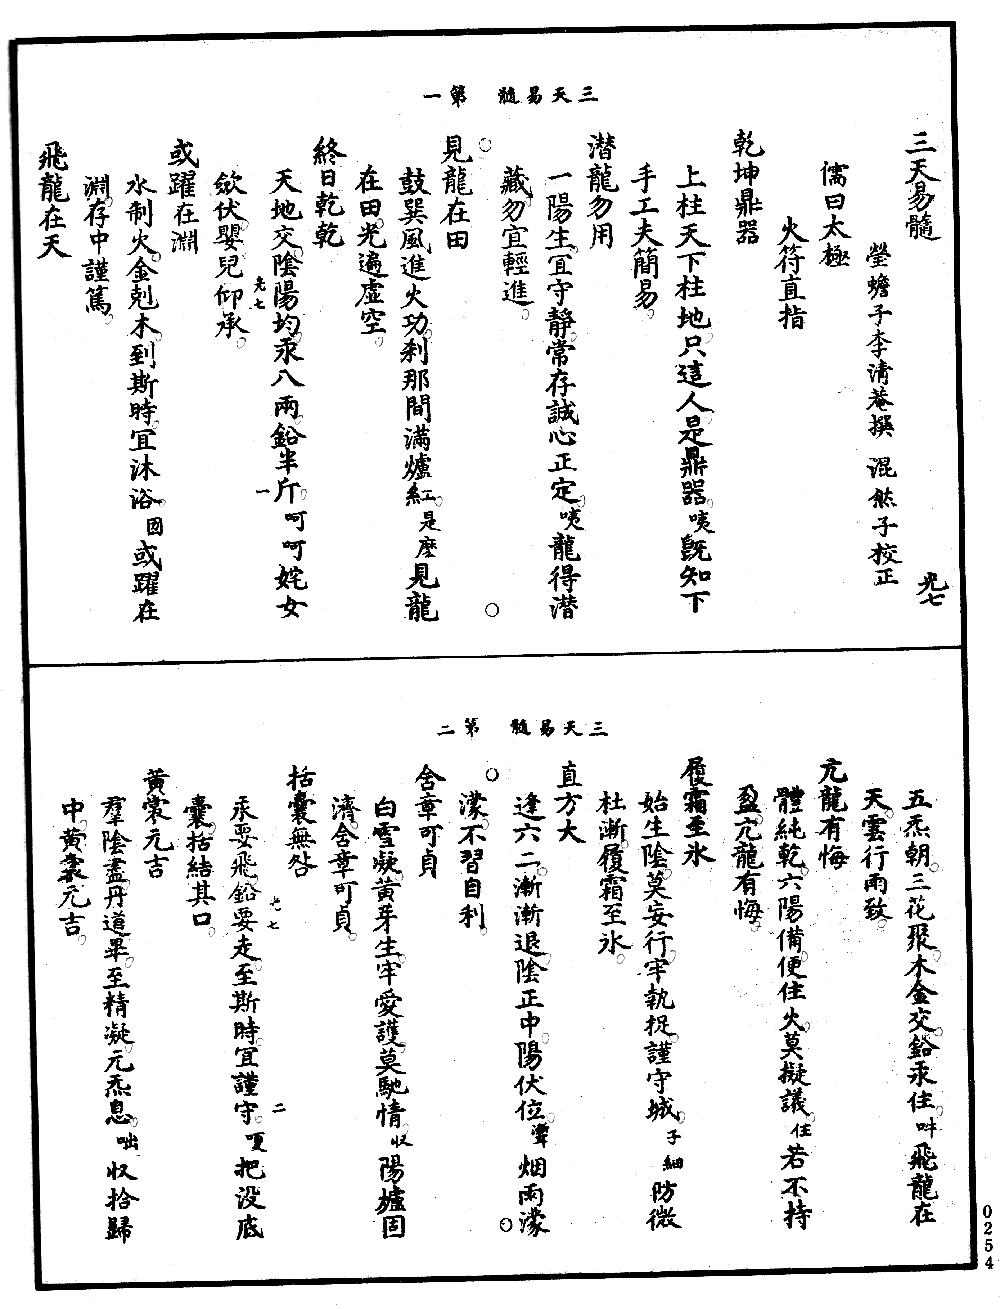 三天易髓　第一
三天易髓　光七
瑩蟾子李清菴撰　混然子校正
儒曰太極
火符直指
乾坤鼎器
上柱天下柱地只這人是鼎器咦旣知下
手工夫簡易
潛龍勿用
一陽生宜守靜常存誠心正定咦龍得潛
藏勿宜輕進
見龍在田
鼓巽風進火功刹那間滿爐紅是麽見龍
在田光遍虛空
終日乾乾
天地交陰陽均汞八兩鉛半斤呵呵姹女
歛伏嬰兒仰承
光七
一
或躍在淵
水制火金剋木到斯時宜沐浴㘞或躍在
淵存中謹篤
飛龍在天
三天易髓　第二
五炁朝三花聚木金交鉛汞住吽飛龍在
天雲行雨致
亢龍有悔
體純乾六陽備便住火莫擬議住若不持
盈亢龍有悔
履霜至氷
始生陰莫妄行牢執捉謹守城子細防微
杜漸履霜至氷
直方大
逢六二漸漸退陰正中陽伏位㴾烟雨濛
濛不習自利
含章可貞
白雪凝黃芽生牢愛護莫馳情収陽爐固
濟含章可貞
括囊無咎
汞要飛鉛要走至斯時宜謹守嗄把没底
囊括結其口
光七
二
黃裳元吉
羣陰盡丹道畢至精凝元炁息咄収拾歸
中黃裳元吉
0254